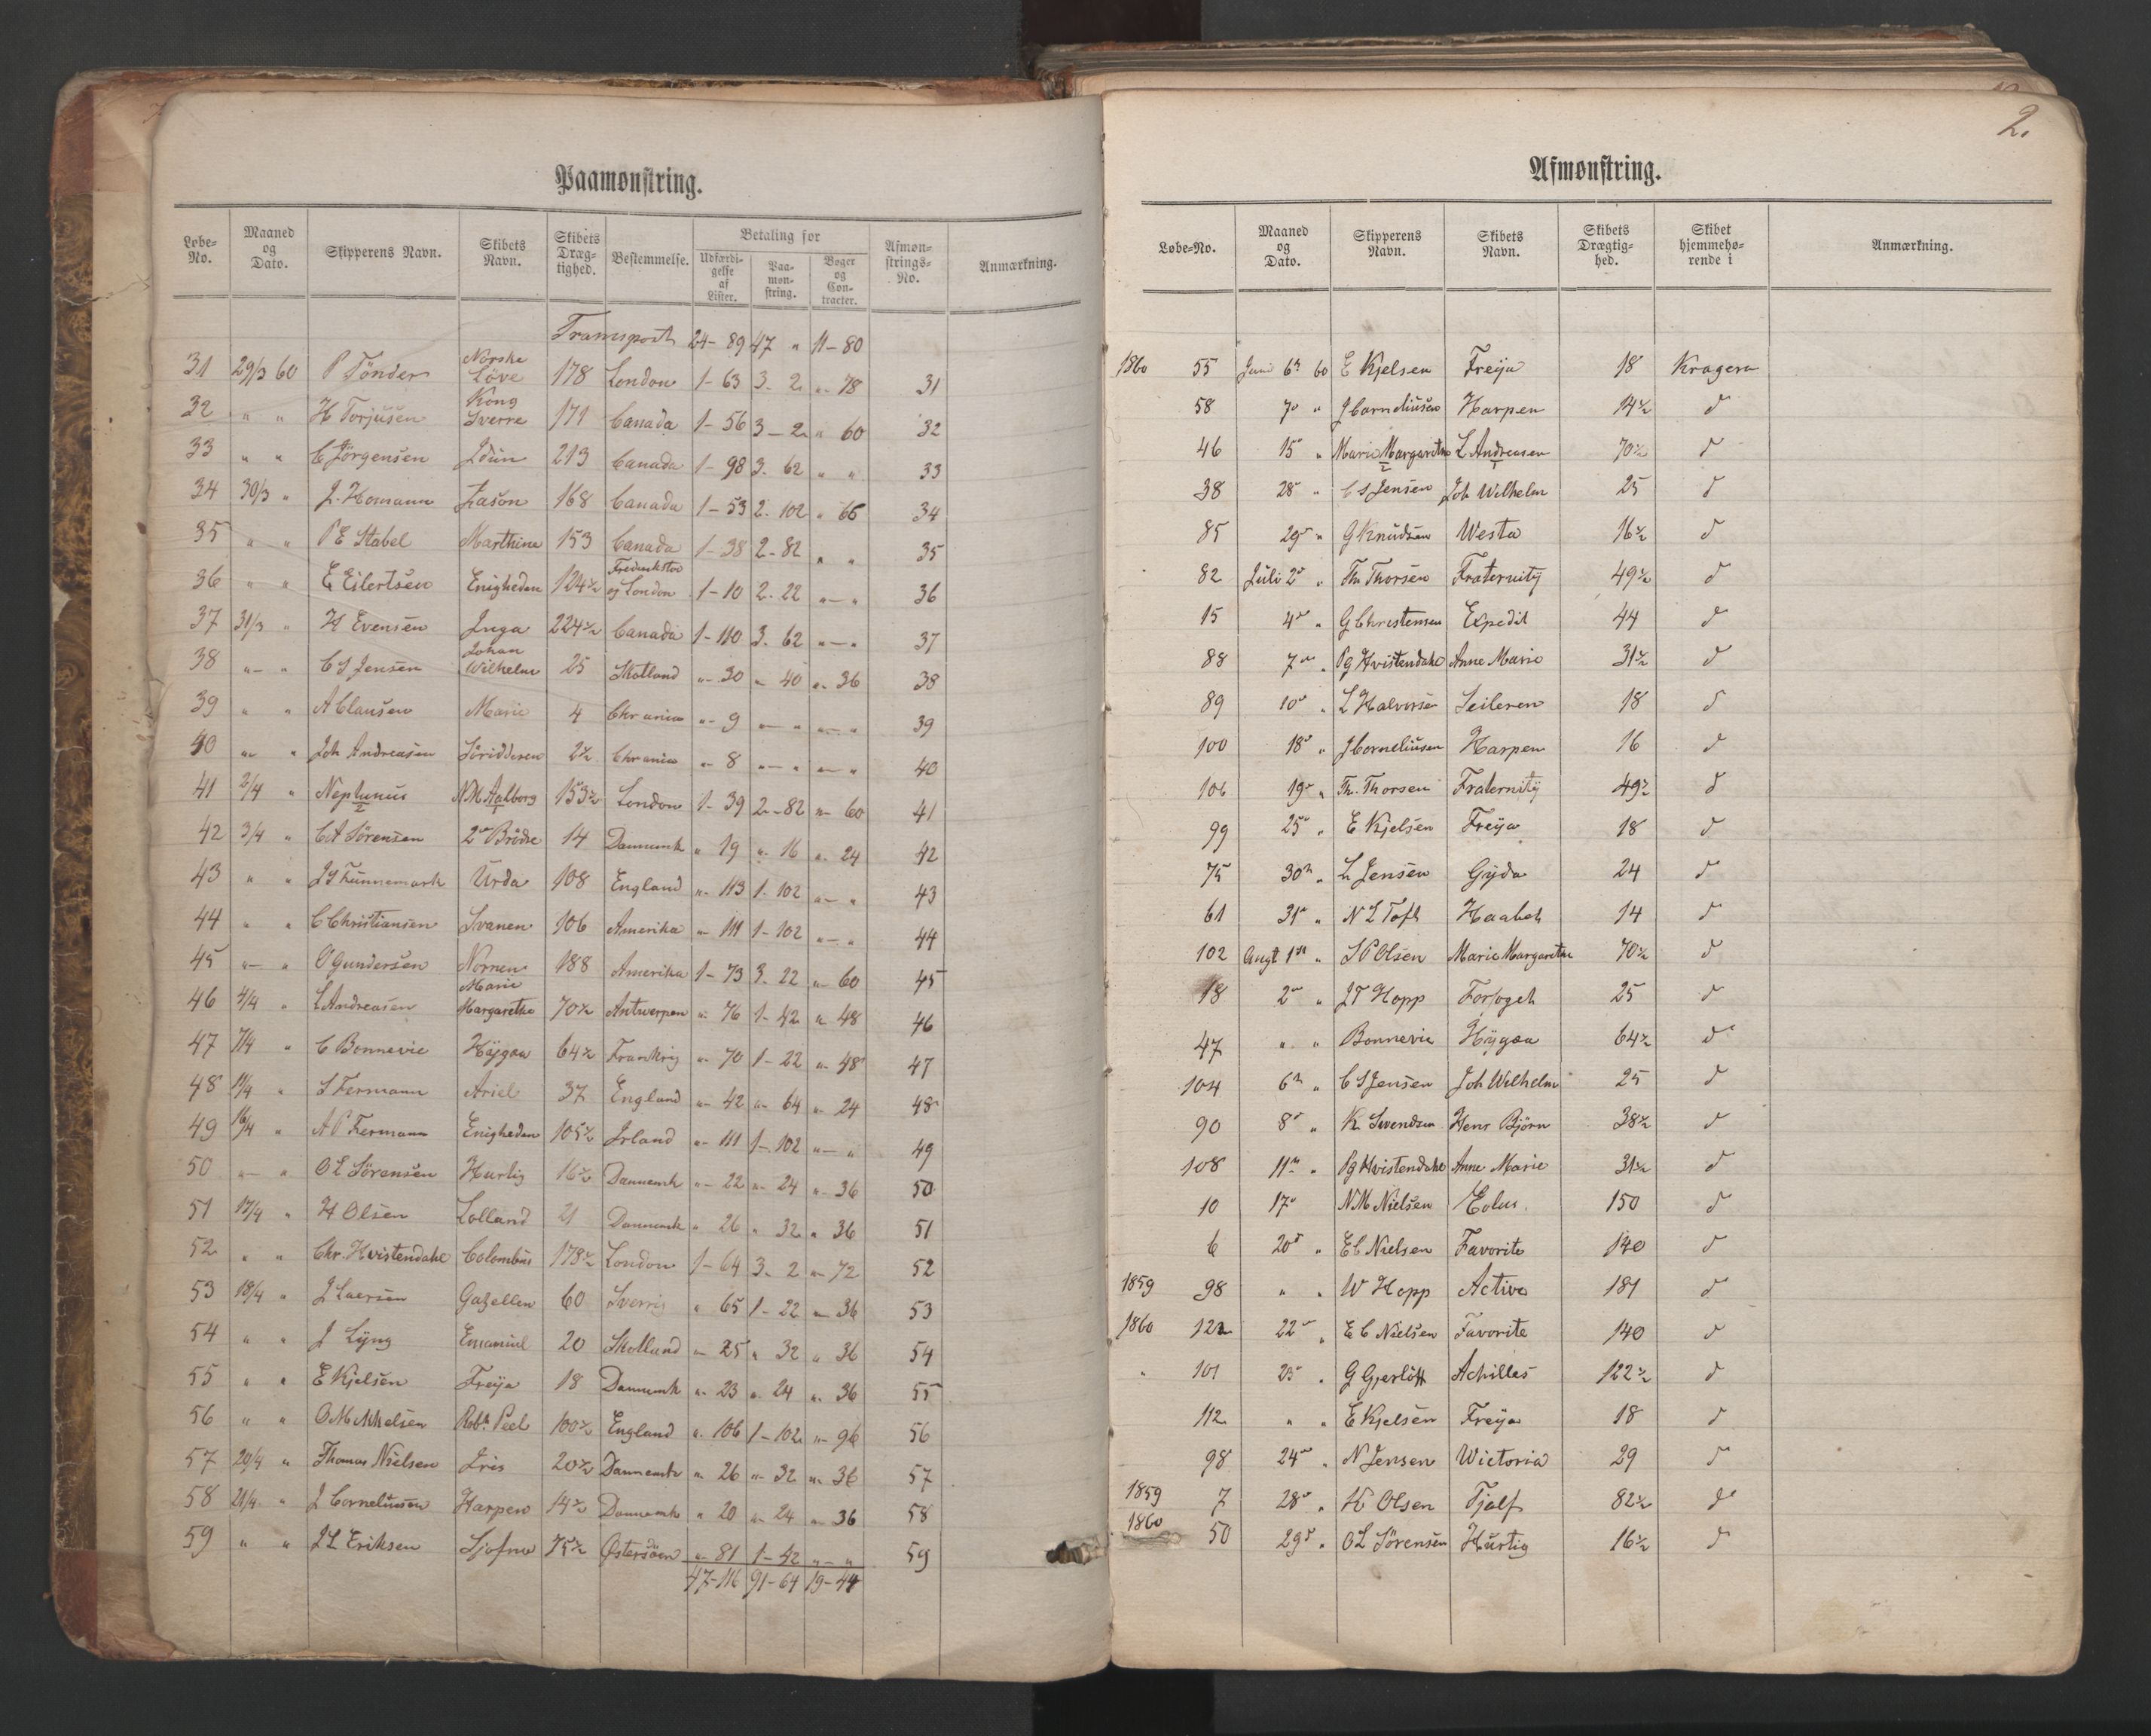 Paamønstring.
Løbe-No. | Maaned og Dato. | Skipperens Navn. | Skibets Navn. | Skibets Dræg-tighed. | Bestemmelse. | Betaling for | Udfærdi-gelse af Lister. | Paa-møn-string. | Bøger og Con-tracter. | Afmøn-strings-No. | Anmærkning.
Transport 24-89 47 " 11-80
31 29/3 60 P Tönder Norske Löve 178 London 1-63 3-2 "-78 31
32 " " H Torjusen Kong Sverre 171 Canada 1-56 3-2 " 60 32
33 " " C Jörgensen Idun 213 Canada 1-98 3-62 " " 33
34 30/3 " J. Homann Jason 168 Canada 1-53 2-102 " 66 34
35 " " P E Stabel Marthine 153 Canada 1-38 2-82 " " 35
36 " " E Eilertsen Enigheden 124½ Fredrikstad og London 1-10 2-22 "-" 36
37 31/3 " H Evensen Inga 224½ Canada 1-110 3-62 "-" 37
38 "-" C S Jensen Johan Wilhelm 25 Skotland "-30 "-40 "-36 38
39 " " A Clausen Marie 4 Chrania "-9 "-" "-" 39
40 " " Joh Andreasen 2½ Chrania "-8 "-" "-" 40
41 2/4 " Neptunus N M Aalborg 153½ London 1-39 2-82 "-60 41
42 3/4 " C A Sörensen 2de Brödre 14 Danmark " 19 "-16 "-24 42
43 " " Urda 108 England "-113 1-102 "-" 43
44 " " C Christiansen Svanen 106 Amerika "-111 1-102 "-" 44
45 "-" O Gundersen Nornen 188 Amerika 1-73 3-22 "-60 45
46 4/4 " L Andreasen Marie Margaretha 70½ Antwerpen "-76 1-42 " 48 46
47 7/4 " C Bonnevie Hÿgæa 64½ Frankrig "-70 1-22 "-48 47
48 11/4 " S Fermann Ariel 37 England "-42 "-64 "-24 48
49 16/4 " A P Fermann Enigheden 105½ Irland "-111 1-102 "-" 49
50 "-" O L Sörensen Hurtig 16½ Danmark "-22 "-24 "-36 50
51 17/4 " H Olsen Lolland 21 Danmark " 26 " 32 " 36 51
52 " " Chr. Hvistendahl Colombus 178½ London 1-64 3-2 "-72 52
53 18/4 " J Laersen Gazellen 60 Sverrig " 65 1-22 "-36 53
54 " " J Lÿng Emanuel 20 Skotland "-25 " 32 " 36 54
55 " " E Kjelsen Freÿa 18 Danmark "-23 "-24 "-36 55
56 " " O Mikkelsen Robt. Peel 100½ England "-106 1-102 "-96 56
57 20/4 " Thomas Nielsen Iris 20½ Danmark "-26 "-32 "-36 57
58 21/4 " J Corneliusen Harpen 14½ Danmark " 20 "-24 "-36 58
59 " " J L Eriksen Sjofna 75½ Østersöen "-81 1-42 "-" 59
47-116 91-64 19-44
2.
Afmønstring.
Løbe-No. | Maaned og Dato. | Skipperens Navn. | Skibets Navn. | Skibets Drægtig-hed. | Skibet hjemmehø-rende i | Anmærkning.
1860 55 Juni 6te 60 E Kjelsen Freÿa 18 Kragerø
58 7de " J Corneliusen Harpen 14½ d
46 15 " Marie Margaretha L Andreasen 70½ d
38 28 " C S Jensen Joh Wilhelm 25 d
85 29 " G Knudsen Westa 16½ d
82 Juli 2 " Th Thorsen Fraternitÿ 49½ d
15 4 " G Christensen Expedit 44 d
88 7 " Pg Hvistendahl Anne Marie 31½ d
89 10 " L Halvorsen Seileren 18 d
100 18 " J Corneliusen Harpen 16 d
106 19 " Th. Thorsen Fraternitÿ 49½ d
99 25 " E Kjelsen Freÿa 18 d
75 30 " L Jensen Gÿda 24 d
61 31 " N L Toft Haabet 14 d
102 Augt 1st " S P Olsen Marie Margaretha 70½ d
18 2 " J T Hopp Forsøget 25 d
47 " " Bonnevie Hÿgæa 64½ d
104 6 " C S Jensen Joh Wilhelm 25 d
90 8 " K. Svendsen Henr Björn 38½ d
108 11 " Pg Hvistendahl Anne Marie 31½ d
10 17 N M Nielsen Eolus 150 d
6 20 " E C Nielsen Favorite 140 d
1859 98 " " W Hopp Active 181 d
1860 122 22 " E C Nielsen Favorite 140 d
" 101 23 " G Gjerlöff Achilles 122½ d
112 " " E Kjelsen Freÿa 18 d
98 24 " N Jensen Wictoria 29 d
1859 7 28 " K Olsen Tjalf 82½ d
1860 50 29 " O L Sörensen Hurtig 16½ d